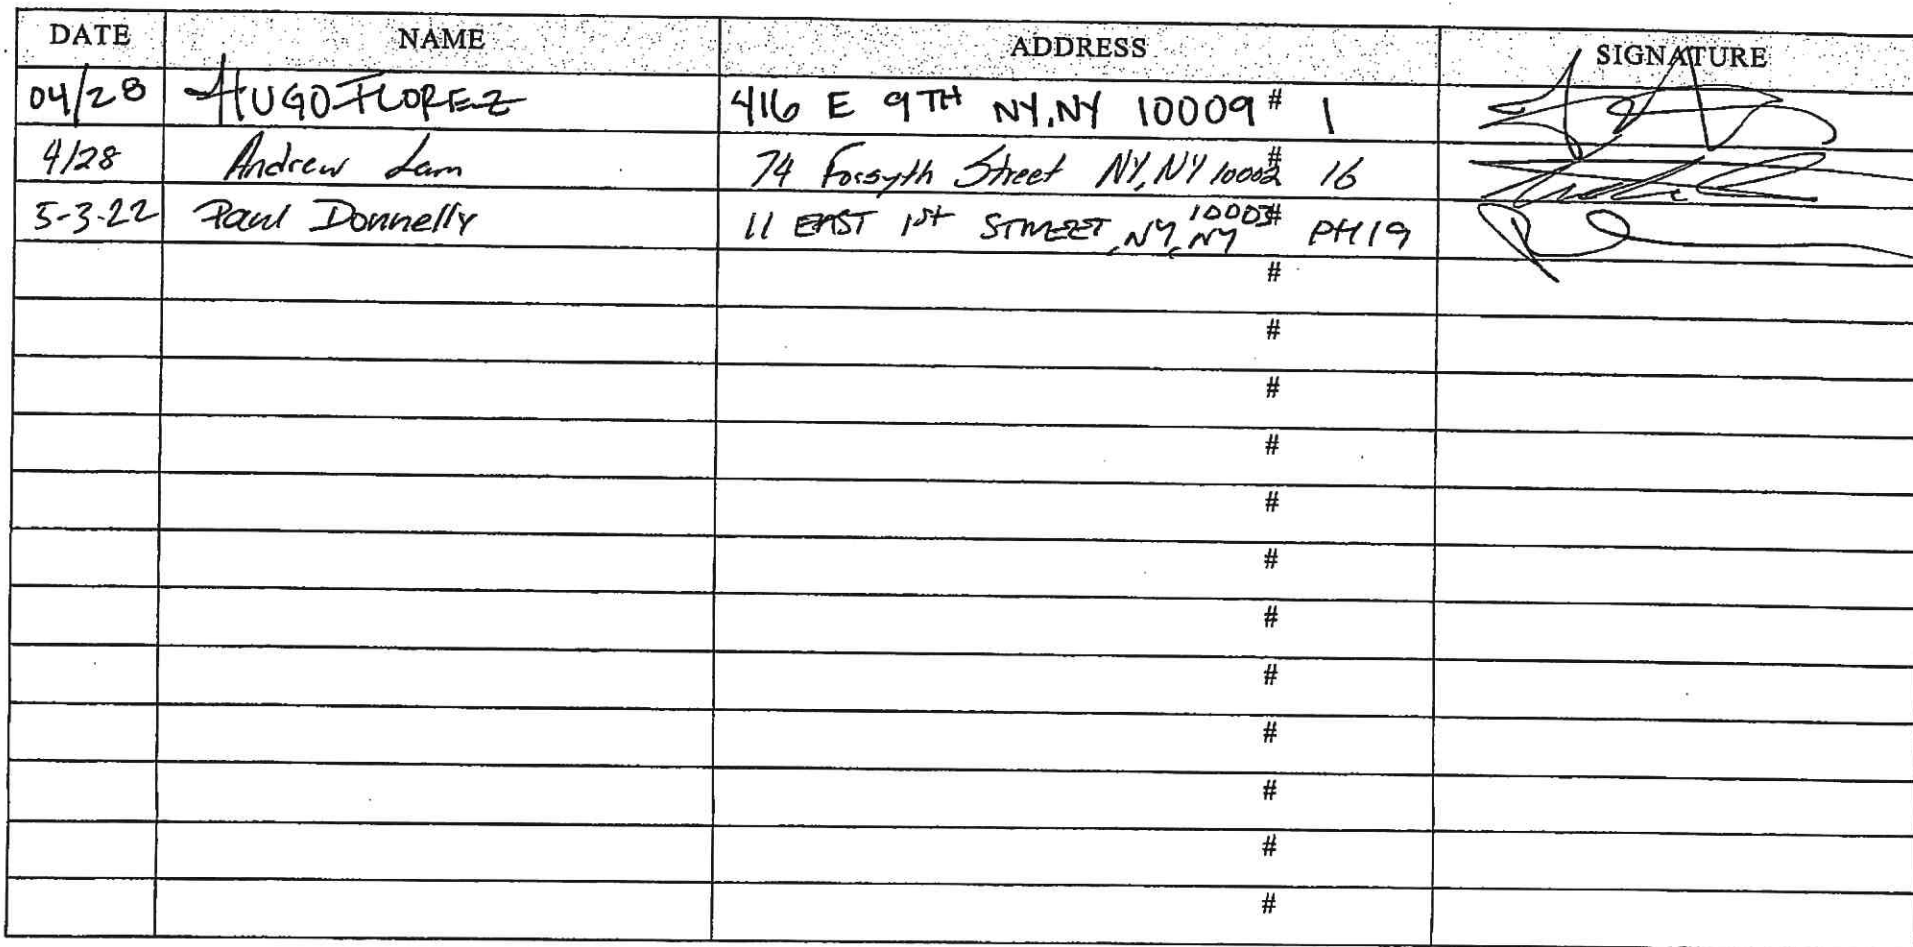 DATE NAME ADDRESS SIGNATURE
04/28 HUGO FLOREZ 416 E 9TH NY, NY 10009 # 1
4/28 Andrew Lam 74 Forsyth Street NY, NY 10002 # 16
5-3-22 Paul Donnelly 11 EAST 1st STREET, NY, NY 10003 # PH19
#
#
#
#
#
#
#
#
#
#
#
#